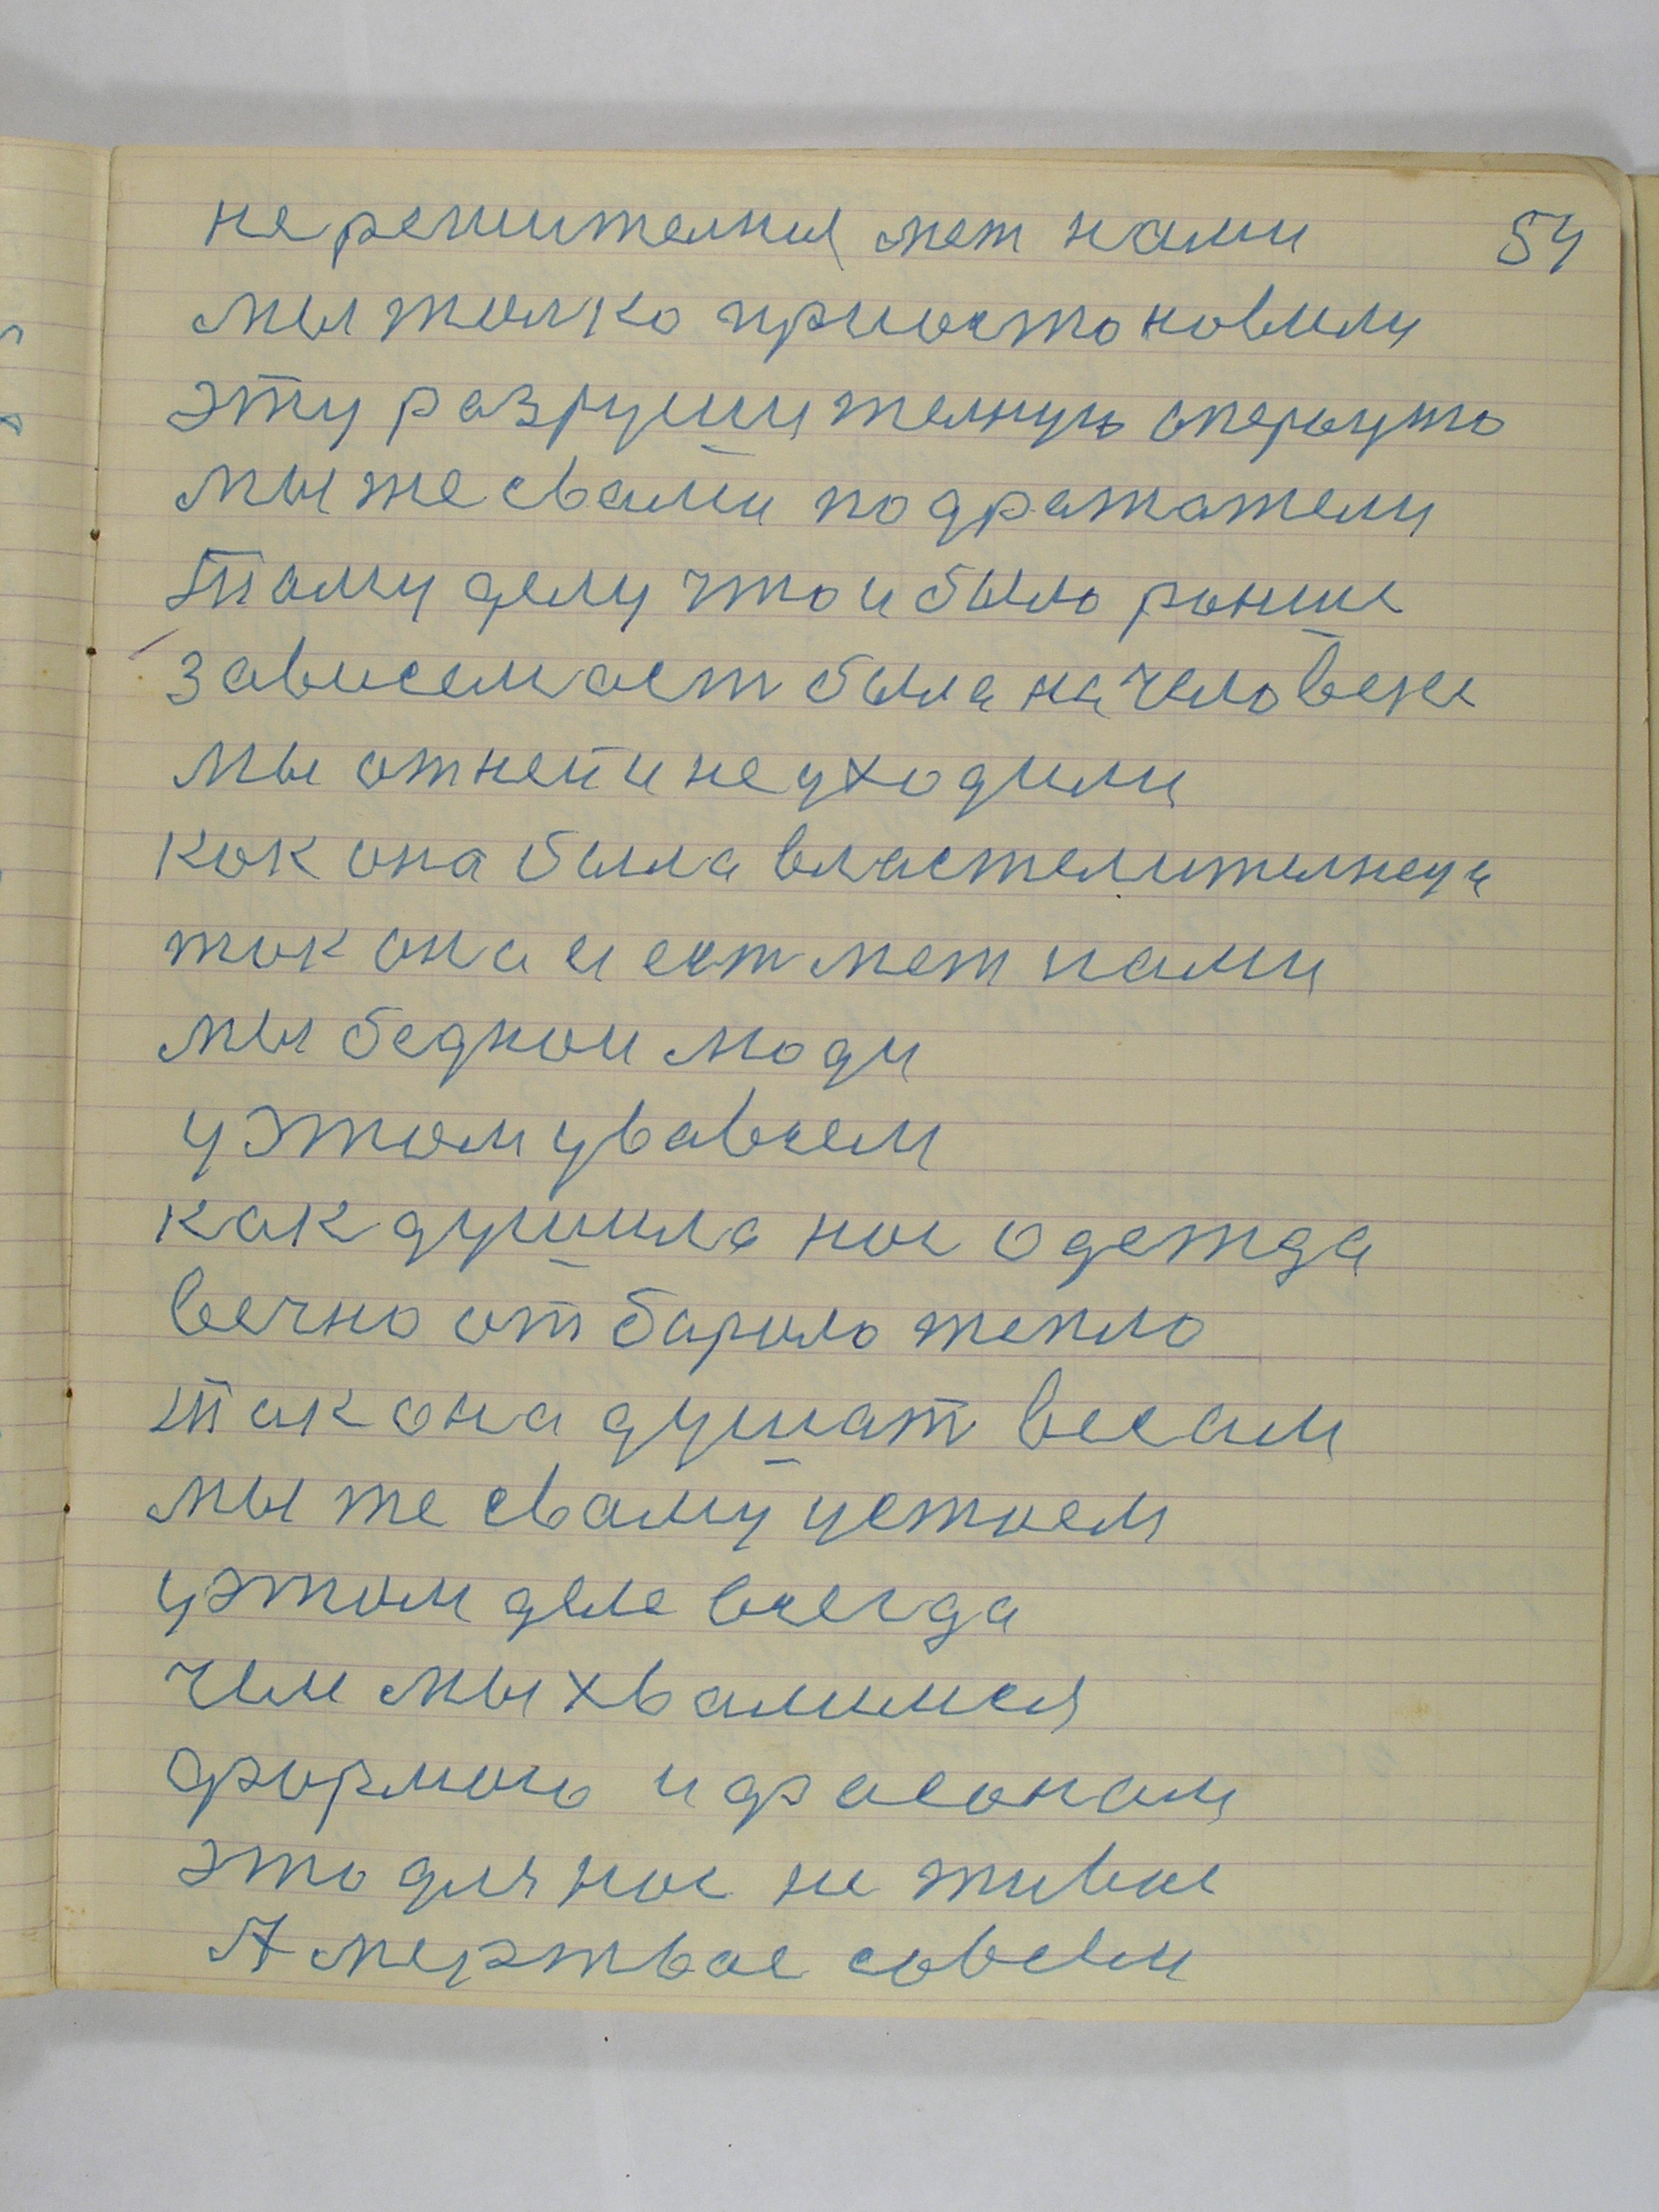 нерешителния мет нами 54
мы толко приостоновили
эту разрушителную
мы же свами подражатели
тому делу что и было раньше
зависемаст была начеловеке
мы от ней и не уходили
как она была властелителнеца
так она и ест мет нами
мы бедном люди
у этом увавсем
как душила нас одежда
вечно отбарыло тепло
так она душат весам
мы же свами устоем
уэтом деле всегда
чем мы хвалимся
формою и фасоном
это для нас не живое
А мертвое совсем